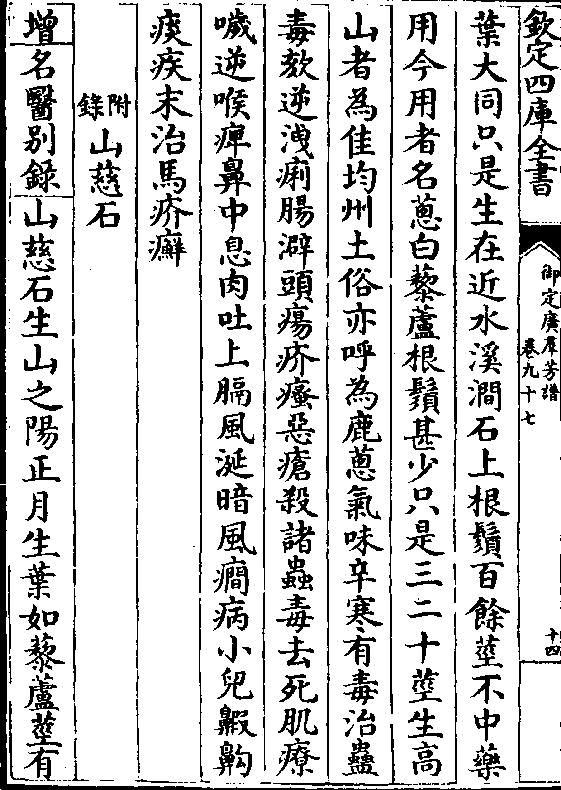 欽定四庫全書
御定廣羣芳譜
卷九十七
十四
葉大同只是生在近水溪澗石上根鬚百餘莖不中藥
用今用者名蔥白藜蘆根鬚甚少只是三二十莖生高
山者為佳均州土俗亦呼為鹿蔥氣味辛寒有毒治蠱
毒欬逆洩痢腸澼頭瘍疥瘙惡瘡殺諸蟲毒去死肌療
噦逆喉痺鼻中息肉吐上膈風涎暗風癇病小兒齁
痰疾末治馬疥癬
附錄 山慈石
增名醫别錄 山慈石生山之陽正月生葉如藜蘆莖有